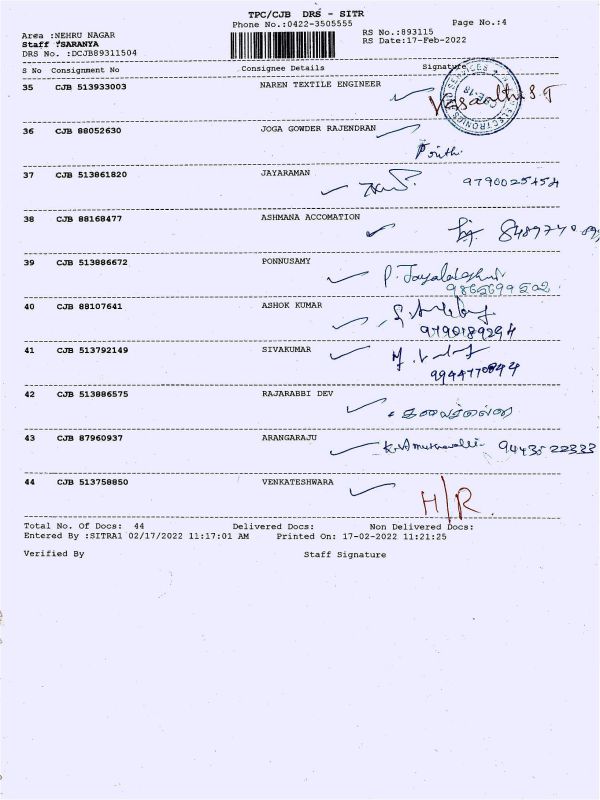 TPC/CJB DRS - SITR
Phone No.:0422-3505555 Page No.:4
Area :NEHRU NAGAR RS No.:893115
Staff :SARANYA RS Date:17-Feb-2022
DRS No. :DCJB89311504
S No Consignment No Consignee Details Signature
35 CJB 513933003 NAREN TEXTILE ENGINEER
36 CJB 88052630 JOGA GOWDER RAJENDRAN
37 CJB 513861820 JAYARAMAN
9790025454
38 CJB 88168477 ASHMANA ACCOMATION
39 CJB 513886672 PONNUSAMY
40 CJB 88107641 ASHOK KUMAR
9790189294
41 CJB 513792149 SIVAKUMAR
42 CJB 513886575 RAJARABBI DEV
43 CJB 87960937 ARANGARAJU
44 CJB 513758850 VENKATESHWARA
H/R.
Total No. Of Docs: 44 Delivered Docs: Non Delivered Docs:
Entered By :SITRA1 02/17/2022 11:17:01 AM Printed On: 17-02-2022 11:21:25
Verified By Staff Signature